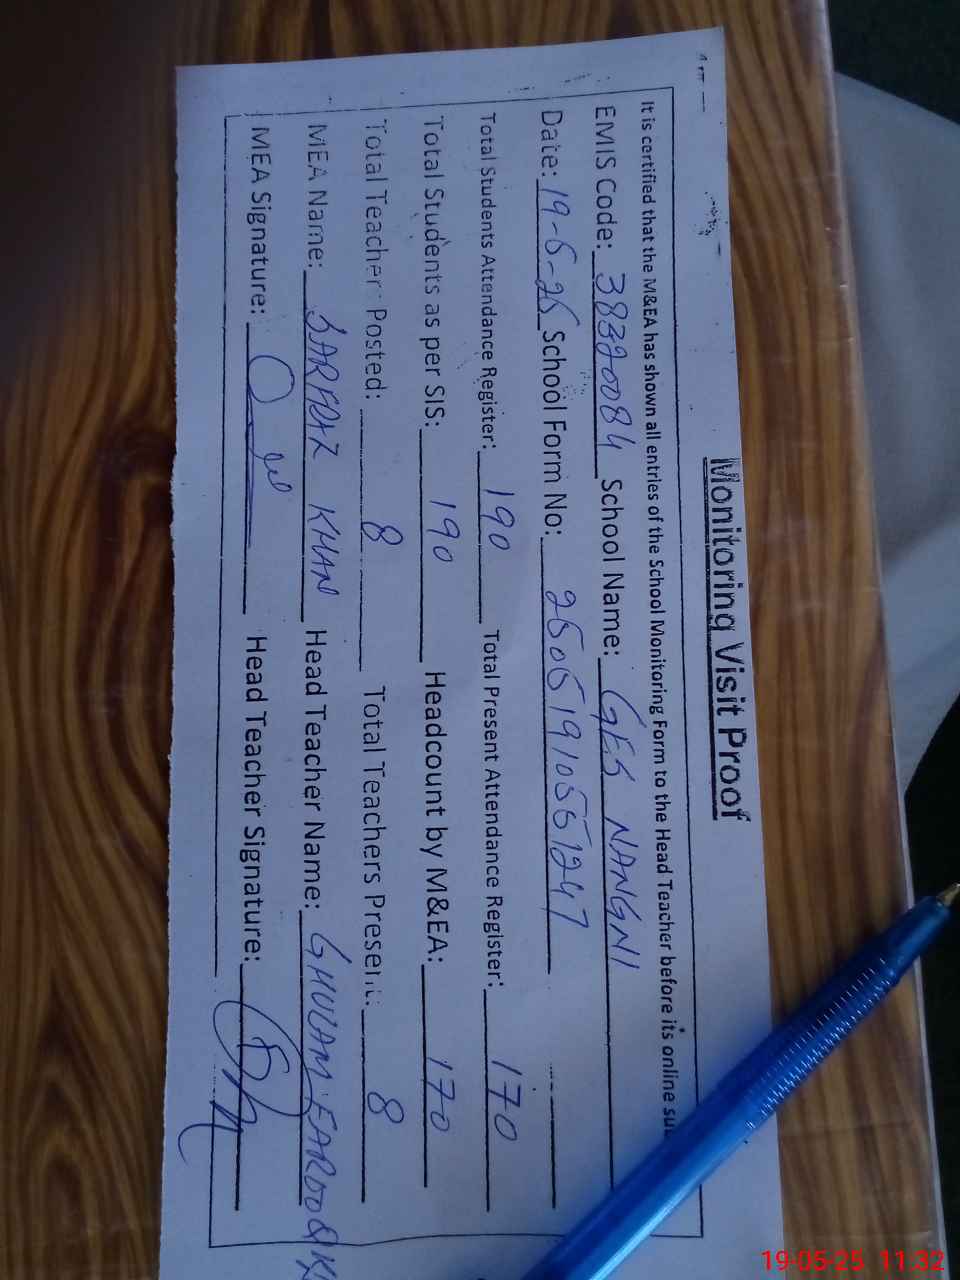 Monitoring Visit Proof
It is certified that the M&EA has shown all entries of the School Monitoring Form to the Head Teacher before its online
EMIS Code: 38320084 School Name: GES NANGNI
Date: 19-5-25 School Form No: 25051910551247
Total Students Attendance Register: 190 Total Present Attendance Register: 170
Total Students as per SIS: 190 Headcount by M&EA: 170
Total Teacher Posted: 8 Total Teachers Present: 8
MEA Name: SARFRAZ KHAN Head Teacher Name: GHULAM FAROOQ
MEA Signature: Head Teacher Signature:
19-05-25 11:32